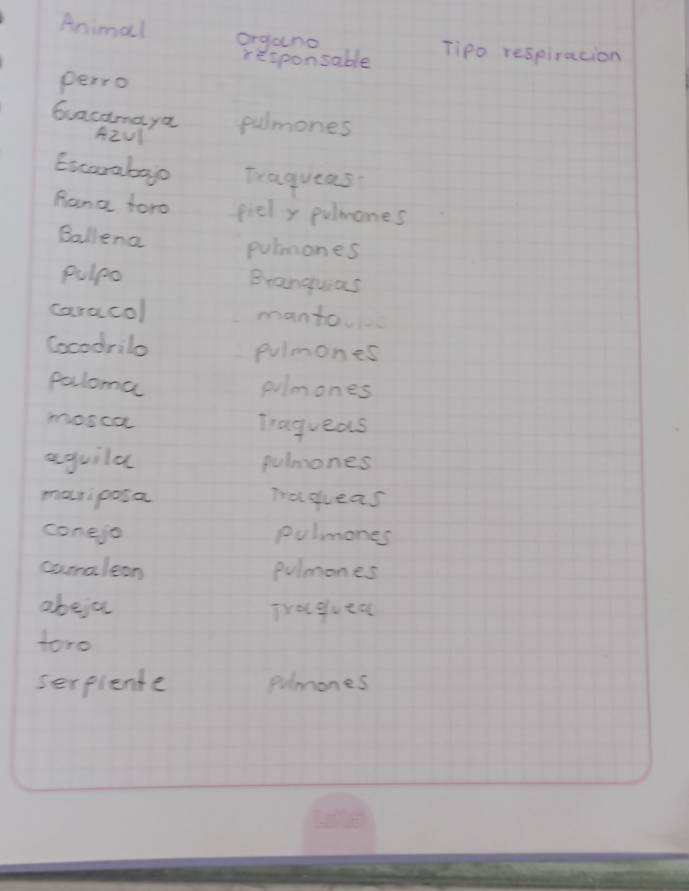 Animal organo responsable Tipo respiracion
perro
Guacamaya Azul pulmones
Escarabajo Traqueas
Rana toro piel y pulmones
Ballena pulmones
pulpo Branquias
caracol manto
Cocodrilo pulmones
Paloma pulmones
mosca Traqueas
aguila pulmones
mariposa Traqueas
conejo pulmones
camaleon pulmones
abeja Traquea
toro
serpiente pulmones